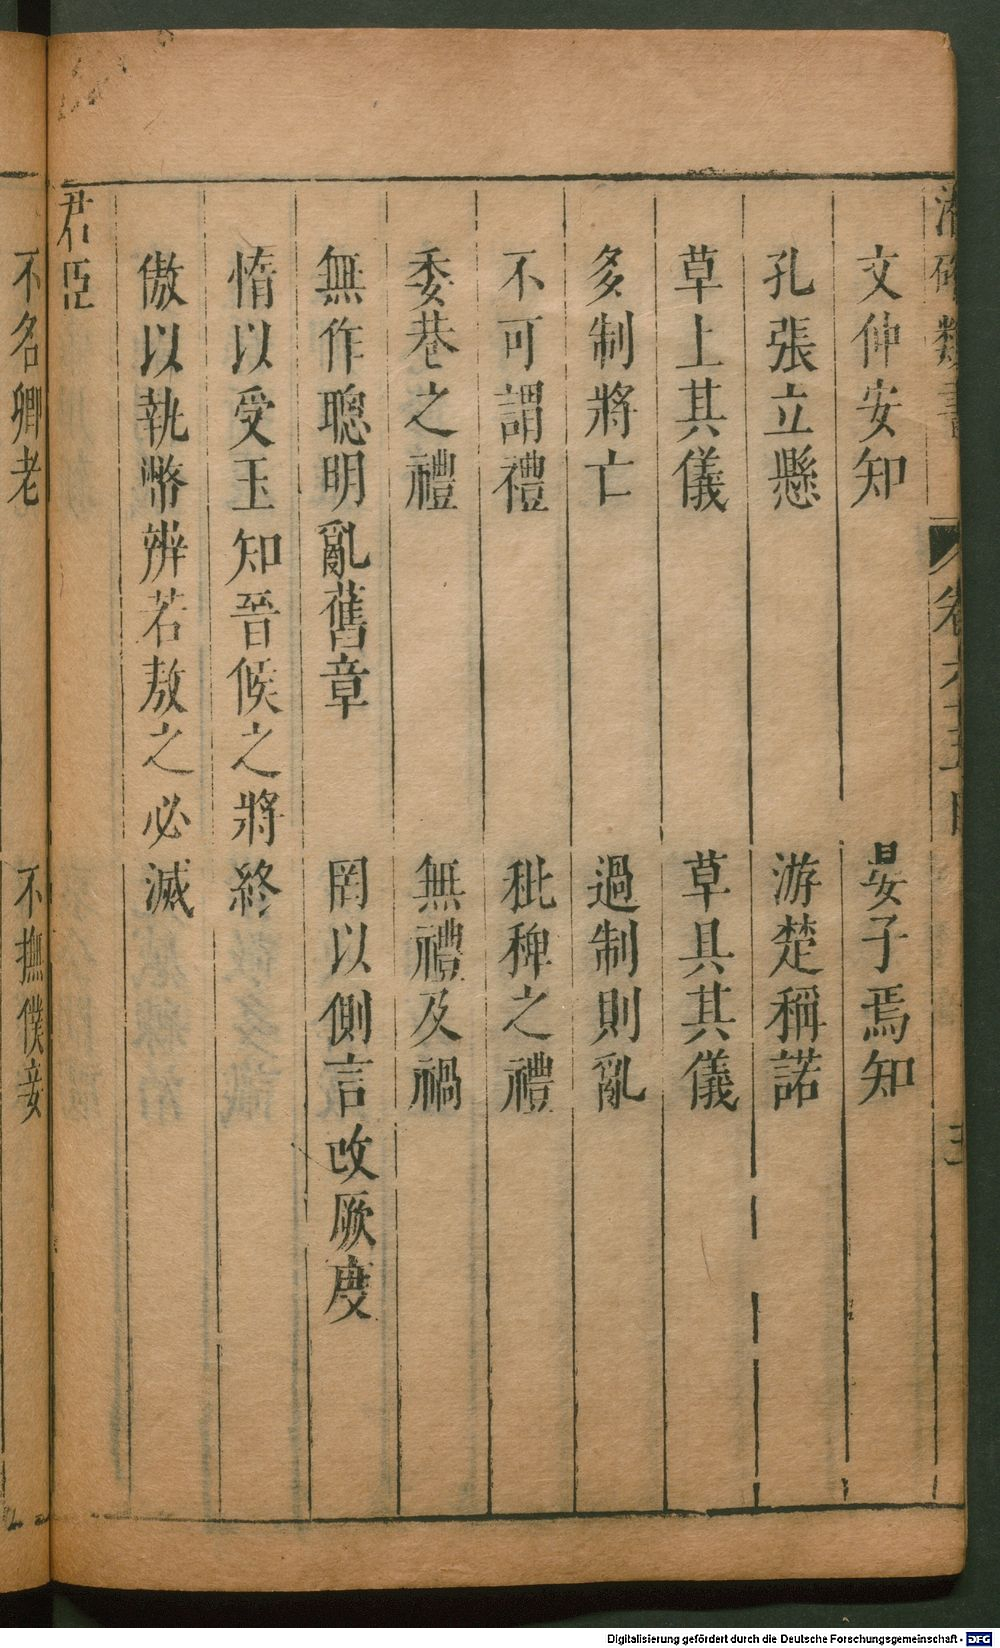 文仲安知 晏子焉知
孔張立懸 游楚稱諾
草上其儀 草具其儀
多制將亡 過制則亂
不可謂禮 秕稗之禮
委巷之禮 無禮及禍
無作聰明亂舊章 罔以側言改厥度
惰以受玉知晉候之將終
傲以執幣辨若敖之必滅
君臣
不名卿老 不撫僕妾
Digitalisierung gefördert durch die Deutsche Forschungsgemeinschaft - DFG